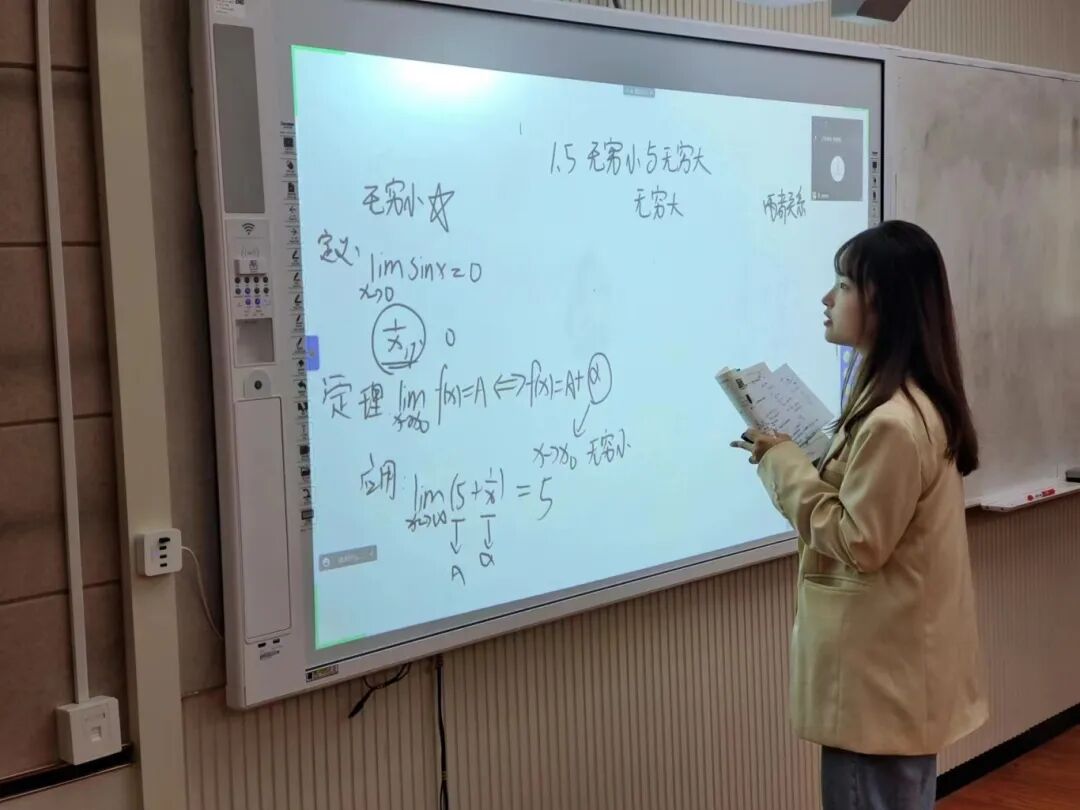 1.5 无穷小与无穷大
无穷小☆ 无穷大 两者关系
定义:
lim sinx=0
x→0
1/x 0
定理 lim f(x)=A⇔f(x)=A+α
x→x₀
x→x₀ 无穷小
应用: lim(5+1/x)=5
x→∞
A α